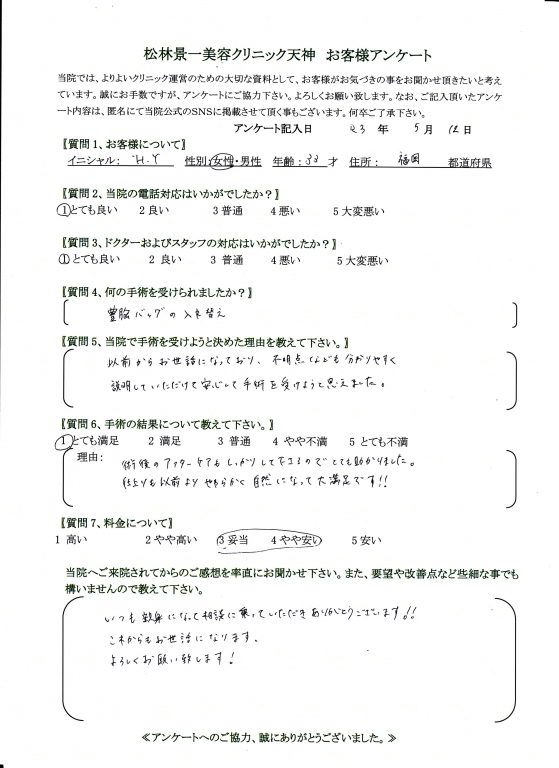 松林景一美容クリニック天神　お客様アンケート
当院では、よりよいクリニック運営のための大切な資料として、お客様がお気づきの事をお聞かせ頂きたいと考え
ています。誠にお手数ですが、アンケートにご協力下さい。よろしくお願い致します。なお、ご記入頂いたアンケ
ート内容は、匿名にて当院公式のSNSに掲載させて頂く事もございます。何卒ご了承下さい。
アンケート記入日　R3 年　5 月　12 日
〖質問 1、お客様について〗
イニシャル：　H.Y　性別：女性・男性　年齢：33 才　住所：　福岡　都道府県
〖質問 2、当院の電話対応はいかがでしたか？〗
①とても良い　2 良い　3 普通　4 悪い　5 大変悪い
〖質問 3、ドクターおよびスタッフの対応はいかがでしたか？〗
①とても良い　2 良い　3 普通　4 悪い　5 大変悪い
〖質問 4、何の手術を受けられましたか？〗
豊胸バッグの入れ替え
〖質問 5、当院で手術を受けようと決めた理由を教えて下さい。〗
以前からお世話になっており、不明点なども分かりやすく
説明していただけて安心して手術を受けようと思えました。
〖質問 6、手術の結果について教えて下さい。〗
①とても満足　2 満足　3 普通　4 やや不満　5 とても不満
理由：
術後のアフターケアもしっかりして下さるのでとても助かりました。
仕上りも以前よりやわらかく自然になって大満足です!!
〖質問 7、料金について〗
1 高い　2 やや高い　3 妥当　4 やや安い　5 安い
当院へご来院されてからのご感想を率直にお聞かせ下さい。また、要望や改善点など些細な事でも
構いませんので教えて下さい。
いつも親身になって相談に乗っていただきありがとうございます!!
これからもお世話になります。
よろしくお願い致します!
≪アンケートへのご協力、誠にありがとうございました。≫